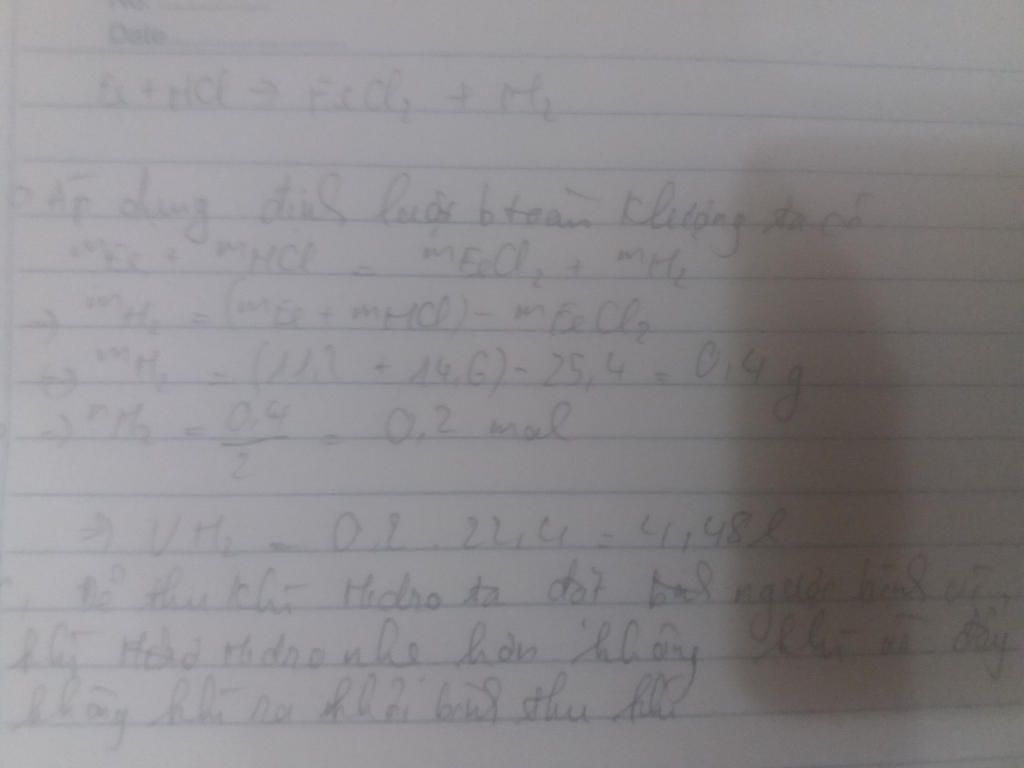 No. ..........
Date ..........
Fe + HCl → FeCl₂ + H₂
Áp dụng định luật btoàn klượng ta có
mFe + mHCl = mFeCl₂ + mH₂
→ mH₂ = (mFe + mHCl) - mFeCl₂
⇔ mH₂ = (11,2 + 14,6) - 25,4 = 0,4 g
→ nH₂ = 0,4/2 = 0,2 mol
⇒ VH₂ = 0,2 . 22,4 = 4,48 l
Để thu khí Hidro ta đặt ngược bình vì
khí Hidro nhẹ hơn không khí nó đẩy
không khí ra khỏi bình thu khí